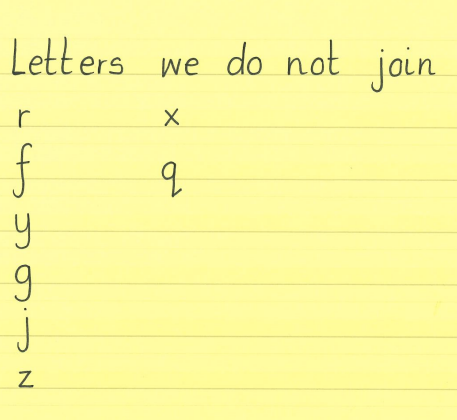 Letters we do not join
r x
f q
y
g
j
z